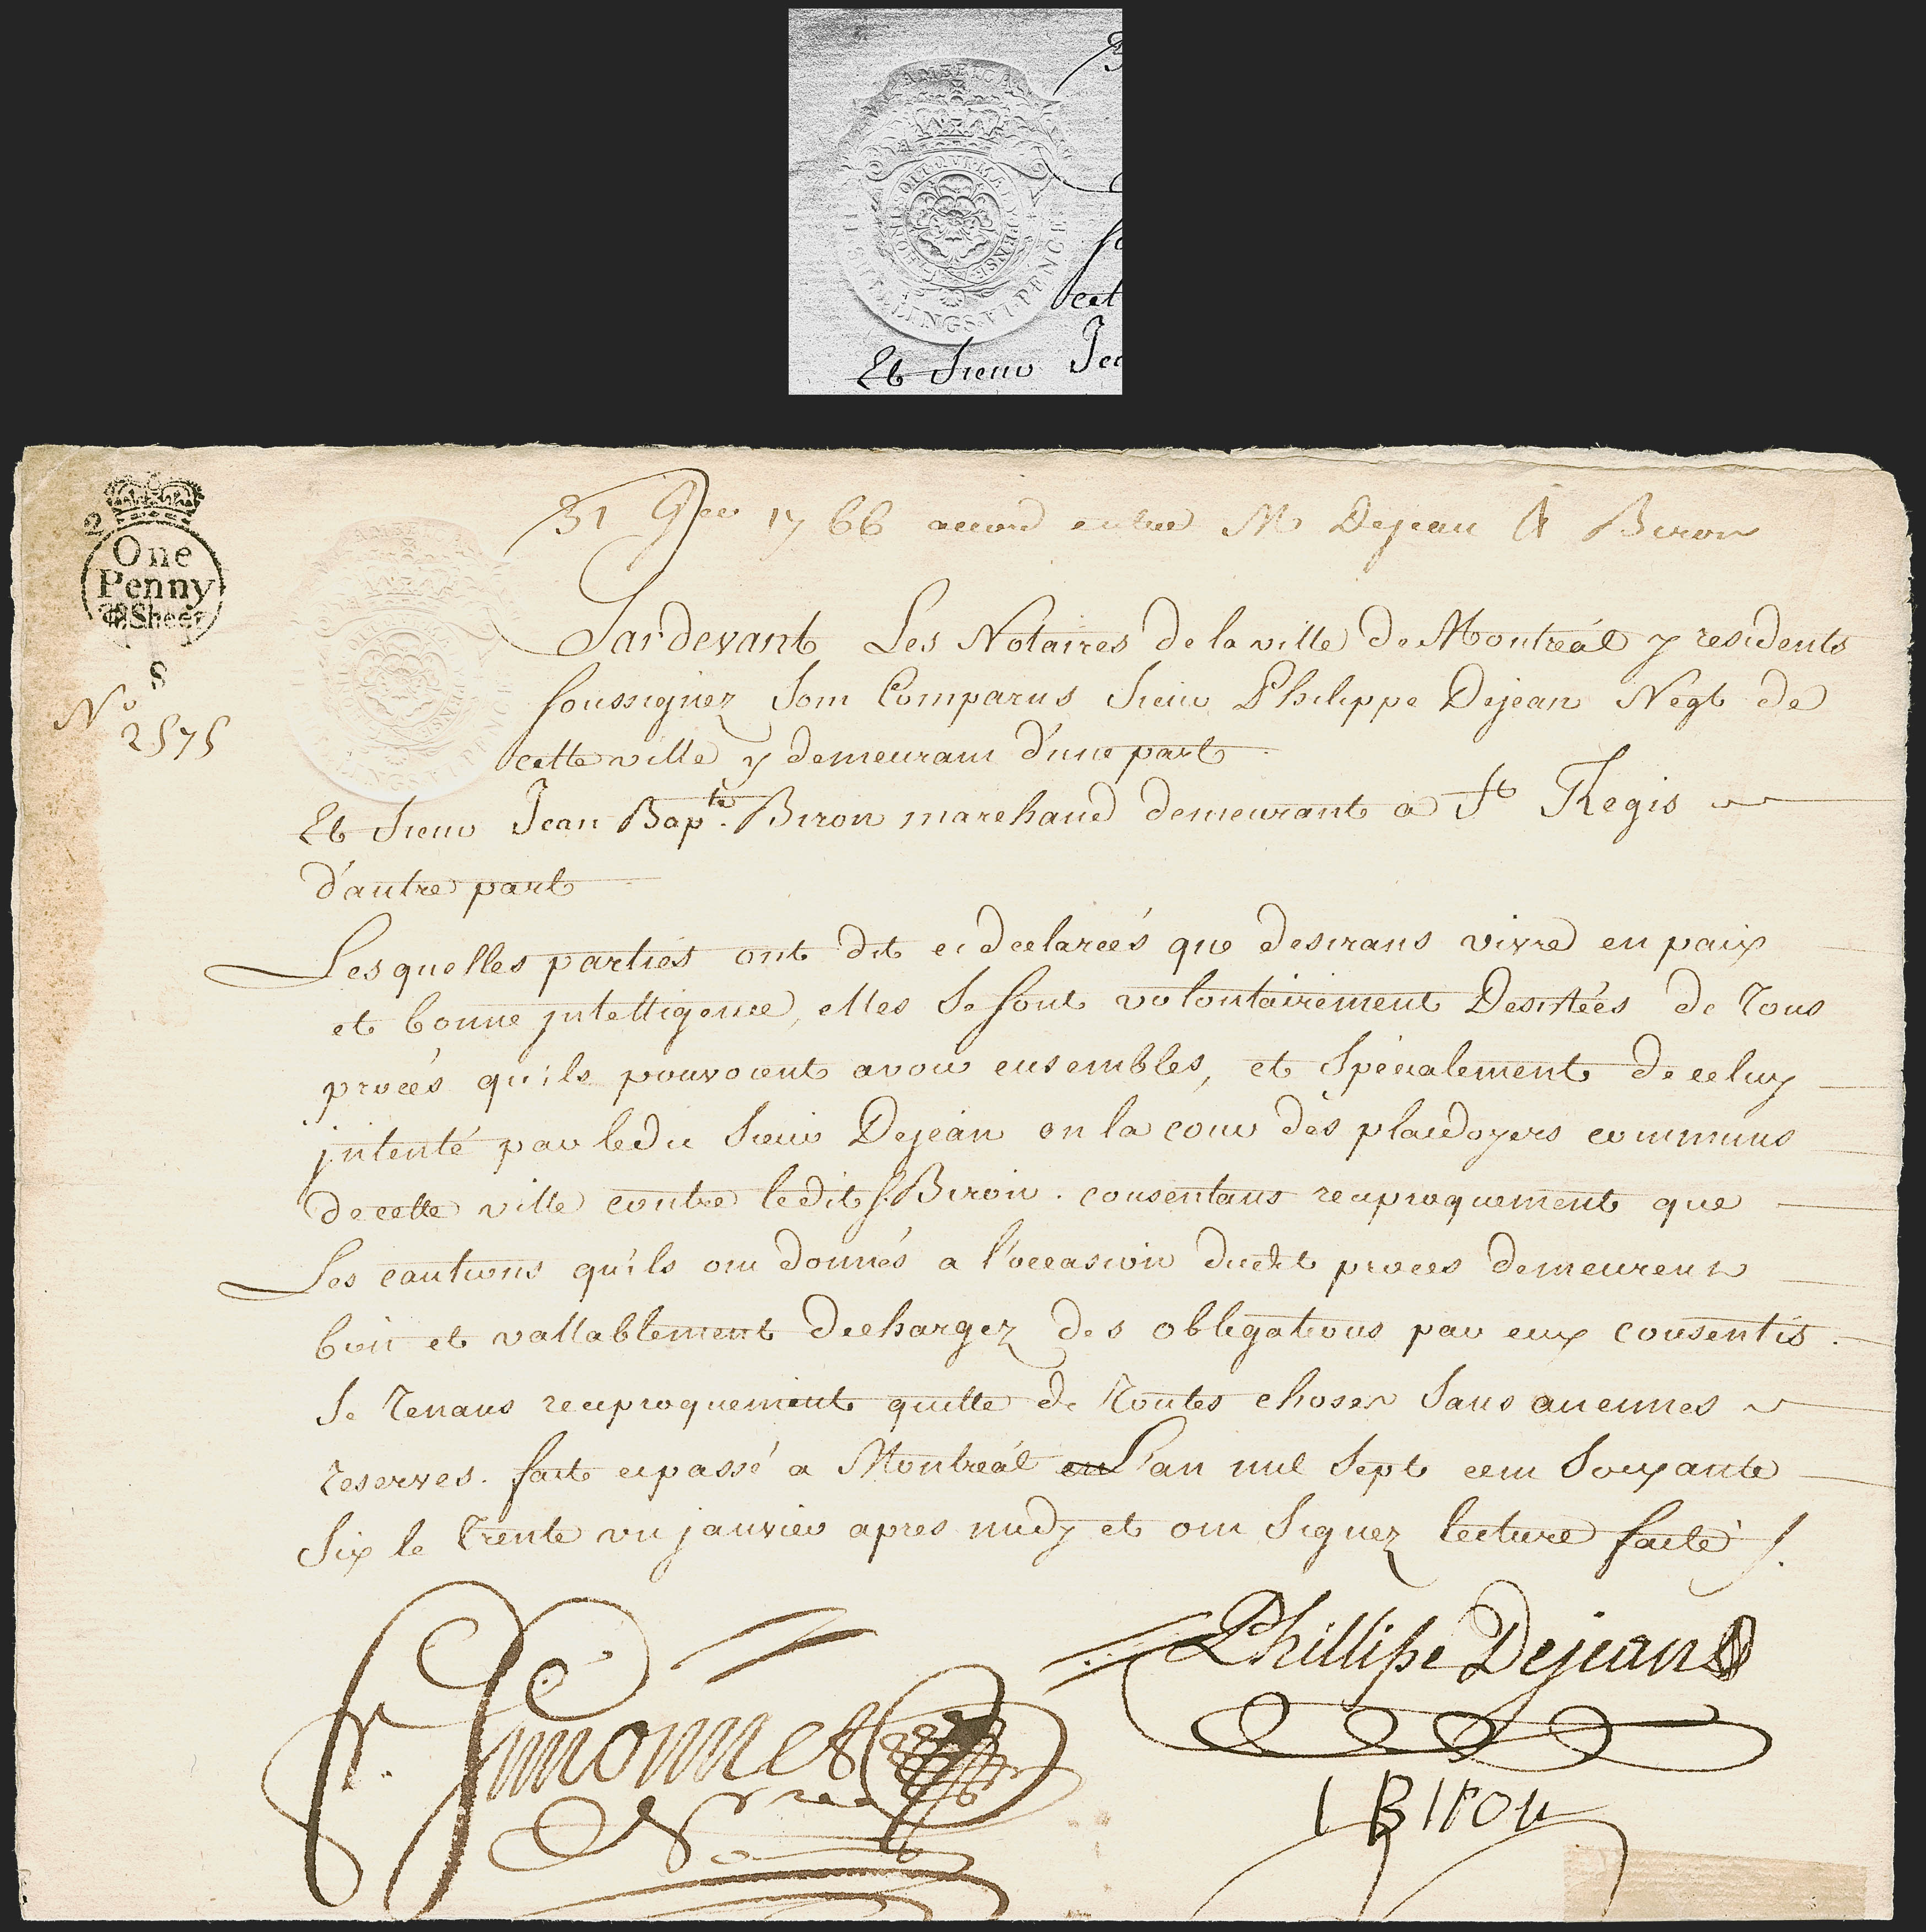 AMERICA
HONI · SOIT · QUI · MAL · Y · PENSE
II · SHILLINGS · VI · PENCE
cet
Et Sieur Jea
2
One
Penny
Sheet
8
No
2575
31 1766 accord entre M Dejean & Biron
Pardevant Les Notaires de la ville de Montreál y residents
soussignez Som Comparus Sieur Philippe Dejean Negt de
cette ville y demeurant d'une part
Et Sieur Jean Bapte. Biron marchand demeurant a St Regis
d'autre part
Les quelles parties ont dit et declareés que desirans vivre en paix
et bonne jntelligence, elles Se sont volontairement Desitées de Tous
proceés qu'ils pouvoient avoir ensembles, et Specialement de celuy
jntenté par ledit Sieur Dejean en la cour des plaidoyers communs
de cette ville contre ledit S. Biron. consentans reciproquement que
Les cautions qu'ils ont donnés a l'occasion dudit proces demeurent
bien et vallablement dechargez des obligations par eux consentis.
Se Tenans reciproquement quitte de Toutes choses Sans aucunnes
reserves. fait et passé a Montreál L'an mil Sept cent Soixante
Six le Trente un janvier apres midy et ont Signez lecture faite
Phillipe Dejean
fr. Simonnet
I BIron